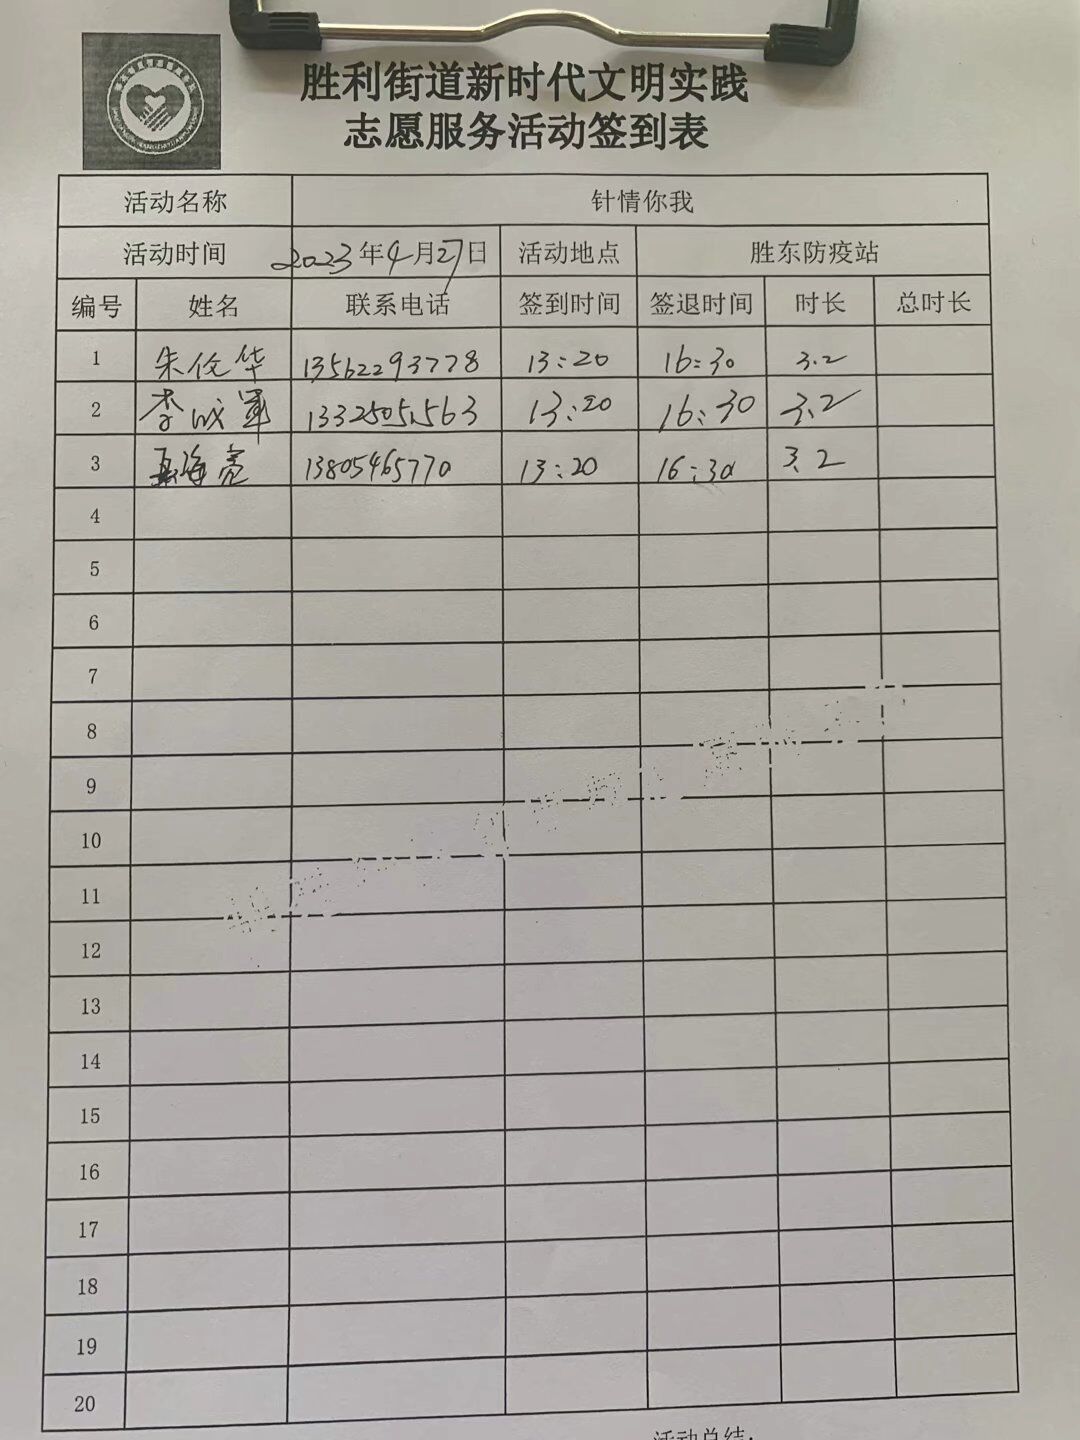 胜利街道新时代文明实践
志愿服务活动签到表
活动名称 针情你我
活动时间 2023年4月27日 活动地点 胜东防疫站
编号 姓名 联系电话 签到时间 签退时间 时长 总时长
1 朱伦华 13562293778 13:20 16:30 3.2
2 李成军 13325051563 13:20 16:30 3.2
3 海亮 13805465770 13:20 16:30 3.2
4
5
6
7
8
9
10
11
12
13
14
15
16
17
18
19
20
活动总结: